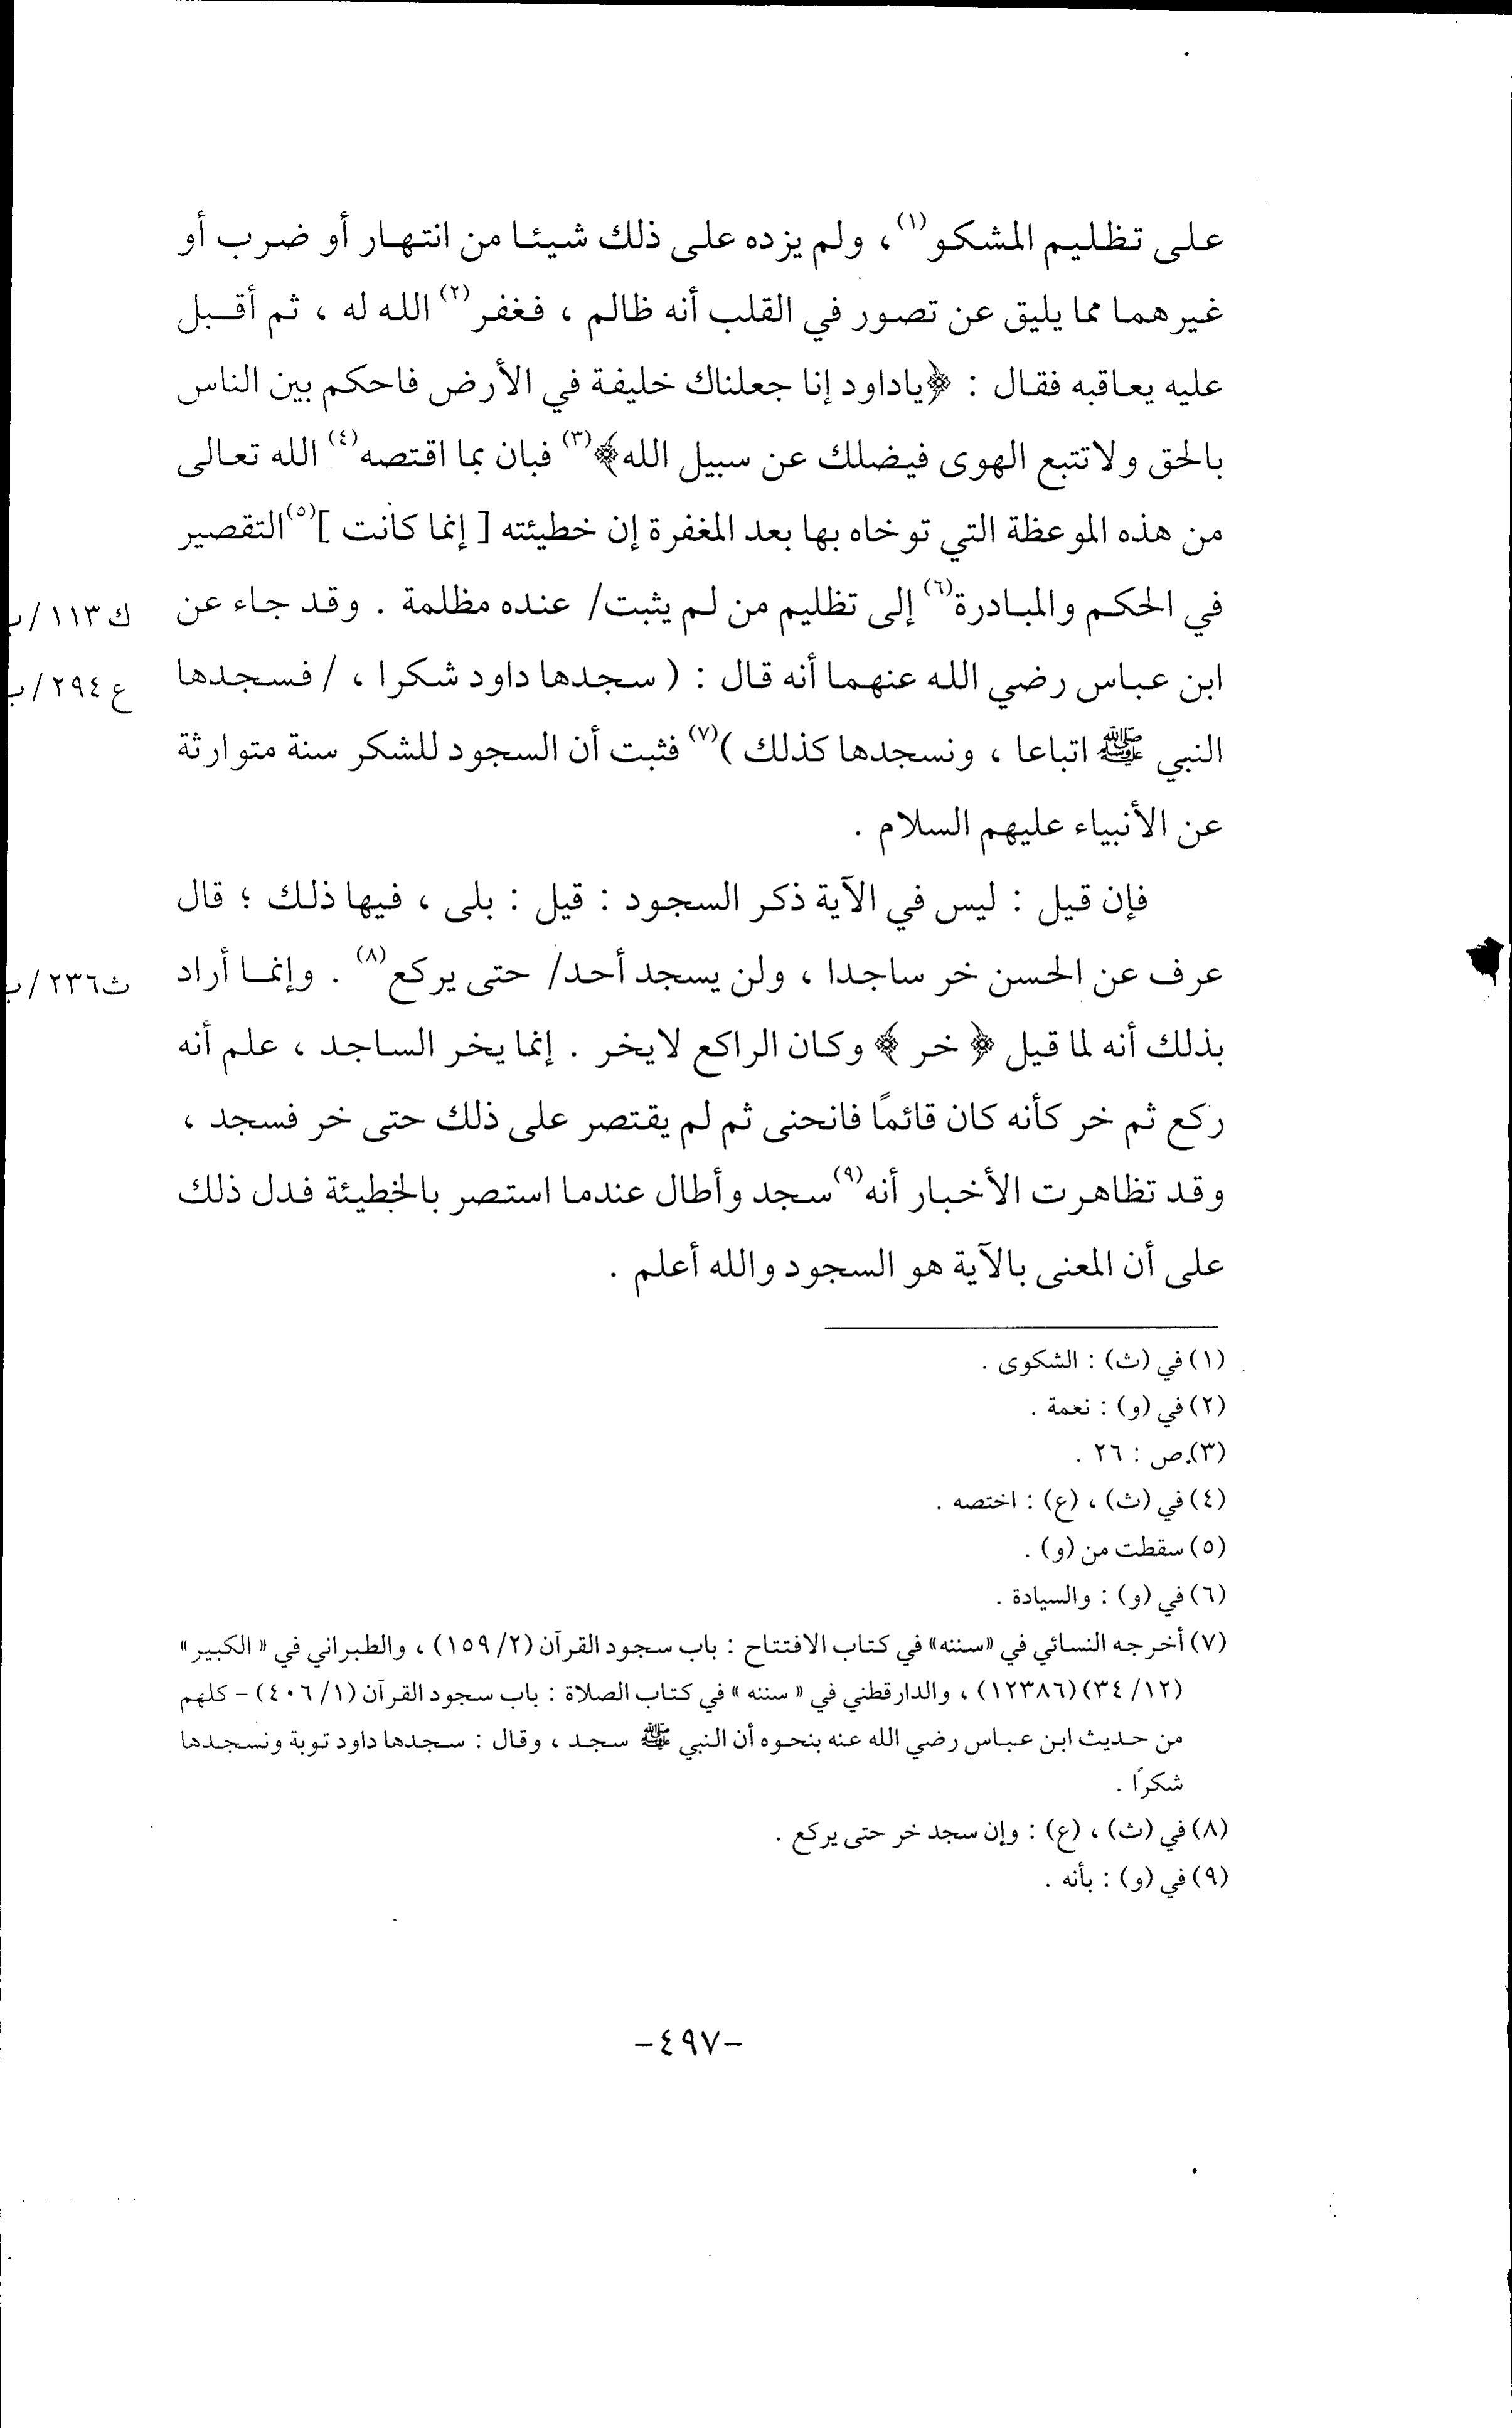 على تظليم المشكو(١)، ولم يزده على ذلك شيئا من انتهار أو ضرب أو
غيرهما مما يليق عن تصور في القلب أنه ظالم ، فغفر(٢) الله له ، ثم أقبل
عليه يعاقبه فقال : ﴿ياداود إنا جعلناك خليفة في الأرض فاحكم بين الناس
بالحق ولاتتبع الهوى فيضلك عن سبيل الله﴾(٣) فبان بما اقتصه(٤) الله تعالى
من هذه الموعظة التي توخاه بها بعد المغفرة إن خطيئته [ إنما كانت ](٥) التقصير
في الحكم والمبادرة(٦) إلى تظليم من لم يثبت/ عنده مظلمة . وقد جاء عن
ك ١١٣/ب
ابن عباس رضي الله عنهما أنه قال : ( سجدها داود شكرا ، / فسجدها
ع ٢٩٤/ب
النبي ﷺ اتباعا ، ونسجدها كذلك )(٧) فثبت أن السجود للشكر سنة متوارثة
عن الأنبياء عليهم السلام .
فإن قيل : ليس في الآية ذكر السجود : قيل : بلى ، فيها ذلك ؛ قال
عرف عن الحسن خر ساجدا ، ولن يسجد أحد/ حتى يركع(٨) . وإنما أراد
ث٢٣٦/ب
بذلك أنه لما قيل ﴿ خر ﴾ وكان الراكع لايخر . إنما يخر الساجد ، علم أنه
ركع ثم خر كأنه كان قائمًا فانحنى ثم لم يقتصر على ذلك حتى خر فسجد ،
وقد تظاهرت الأخبار أنه(٩) سجد وأطال عندما استصر بالخطيئة فدل ذلك
على أن المعنى بالآية هو السجود والله أعلم .
(١) في (ث) : الشكوى .
(٢) في (و) : نعمة .
(٣) ص : ٢٦ .
(٤) في (ث) ، (ع) : اختصه .
(٥) سقطت من (و) .
(٦) في (و) : والسيادة .
(٧) أخرجه النسائي في «سننه» في كتاب الافتتاح : باب سجود القرآن (٢/ ١٥٩) ، والطبراني في « الكبير»
(١٢/ ٣٤) (١٢٣٨٦) ، والدارقطني في « سننه » في كتاب الصلاة : باب سجود القرآن (١/ ٤٠٦) - كلهم
من حديث ابن عباس رضي الله عنه بنحوه أن النبي ﷺ سجد ، وقال : سجدها داود توبة ونسجدها
شكرًا .
(٨) في (ث) ، (ع) : وإن سجد خر حتى يركع .
(٩) في (و) : بأنه .
-٤٩٧-